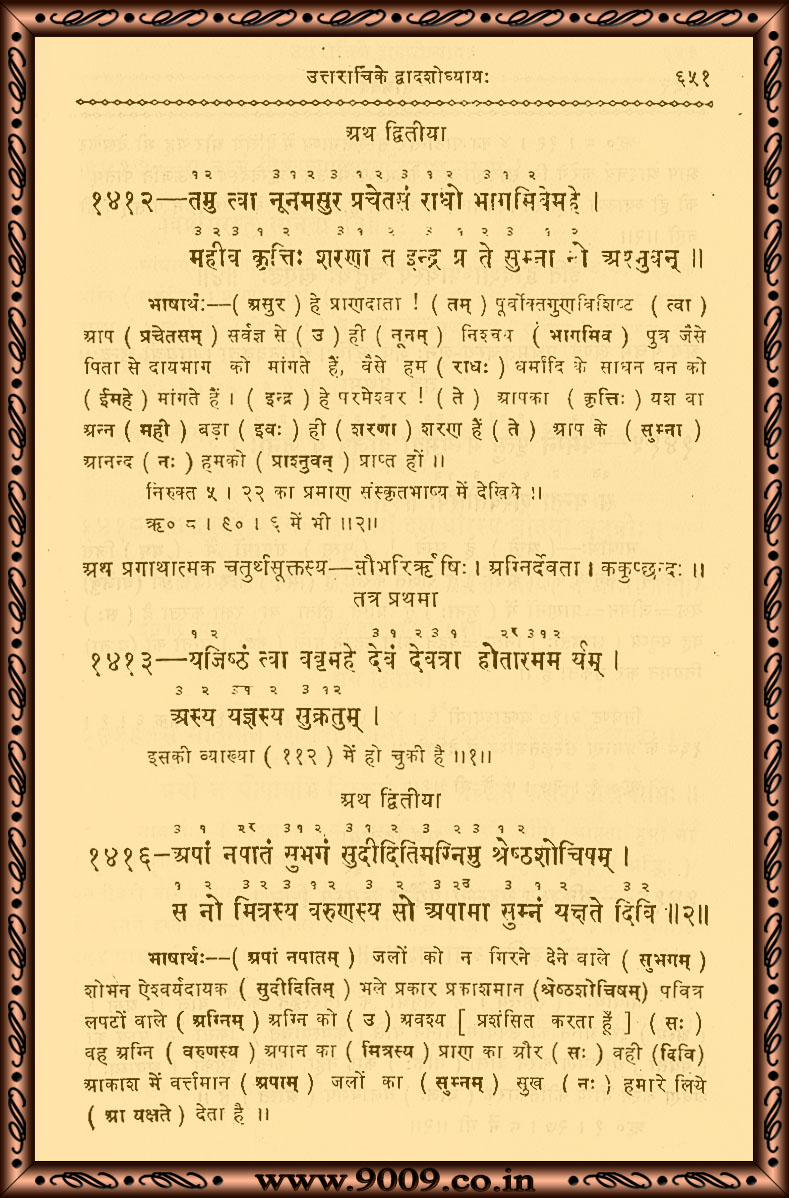 उत्तरार्चिके द्वादशोध्यायः ६५१
अथ द्वितीया
१२ ३१२ ३ १२ ३१२ ३१२
१४१२—तमु त्वा नूनमसुर प्रचेतसं राधो भागमिवेमहे ।
३२३१२ ३१२ ३ १२३ १२
महीव कृत्तिः शरणा त इन्द्र प्र ते सुम्ना नो अश्नुवन् ॥
भाषार्थः—( असुर ) हे प्राणदाता ! ( तम् ) पूर्वोक्तगुणविशिष्ट ( त्वा )
आप ( प्रचेतसम् ) सर्वज्ञ से ( उ ) ही ( नूनम् ) निश्चय ( भागमिव ) पुत्र जैसे
पिता से दायभाग को मांगते हैं, वैसे हम ( राधः ) धर्मादि के साधन धन को
( ईमहे ) मांगते हैं । ( इन्द्र ) हे परमेश्वर ! ( ते ) आपका ( कृत्तिः ) यश वा
अन्न ( मही ) बड़ा ( इवः ) ही ( शरणा ) शरण हैं ( ते ) आप के ( सुम्ना )
आनन्द ( नः ) हमको ( प्राश्नुवन् ) प्राप्त हों ॥
निरुक्त ५ । २२ का प्रमाण संस्कृतभाष्य में देखिये ॥
ऋ० ८ । ९० । ६ में भी ॥२॥
अथ प्रगाथात्मक चतुर्थसूक्तस्य—सौभरिर्ऋषिः । अग्निर्देवता । ककुप्छन्दः ॥
तत्र प्रथमा
१२ ३१ २३१ २र ३१२
१४१३—यजिष्ठं त्वा ववृमहे देवं देवत्रा होतारमम र्यम् ।
३ २ ३१ २ ३ १२
अस्य यज्ञस्य सुक्रतुम् ।
इसकी व्याख्या ( ११२ ) में हो चुकी है ॥१॥
अथ द्वितीया
३ १ २र ३१२ ३१२ ३ २३१२
१४१६–अपां नपातं सुभगं सुदीदितिमग्निमु श्रेष्ठशोचिषम् ।
१ २ ३२३ १२ ३ २ ३ २उ ३ १ २ ३२
स नो मित्रस्य वरुणस्य सो अपामा सुम्नं यक्षते दिवि ॥२॥
भाषार्थः—( अपां नपातम् ) जलों को न गिरने देने वाले ( सुभगम् )
शोभन ऐश्वर्यदायक ( सुदीदितिम् ) भले प्रकार प्रकाशमान (श्रेष्ठशोचिषम्) पवित्र
लपटों वाले ( अग्निम् ) अग्नि को ( उ ) अवश्य [ प्रशंसित करता हूँ ] ( सः )
वह अग्नि ( वरुणस्य ) अपान का ( मित्रस्य ) प्राण का और ( सः ) वही (दिवि)
आकाश में वर्त्तमान ( अपाम् ) जलों का ( सुम्नम् ) सुख ( नः ) हमारे लिये
( आ यक्षते ) देता है ॥
www.9009.co.in